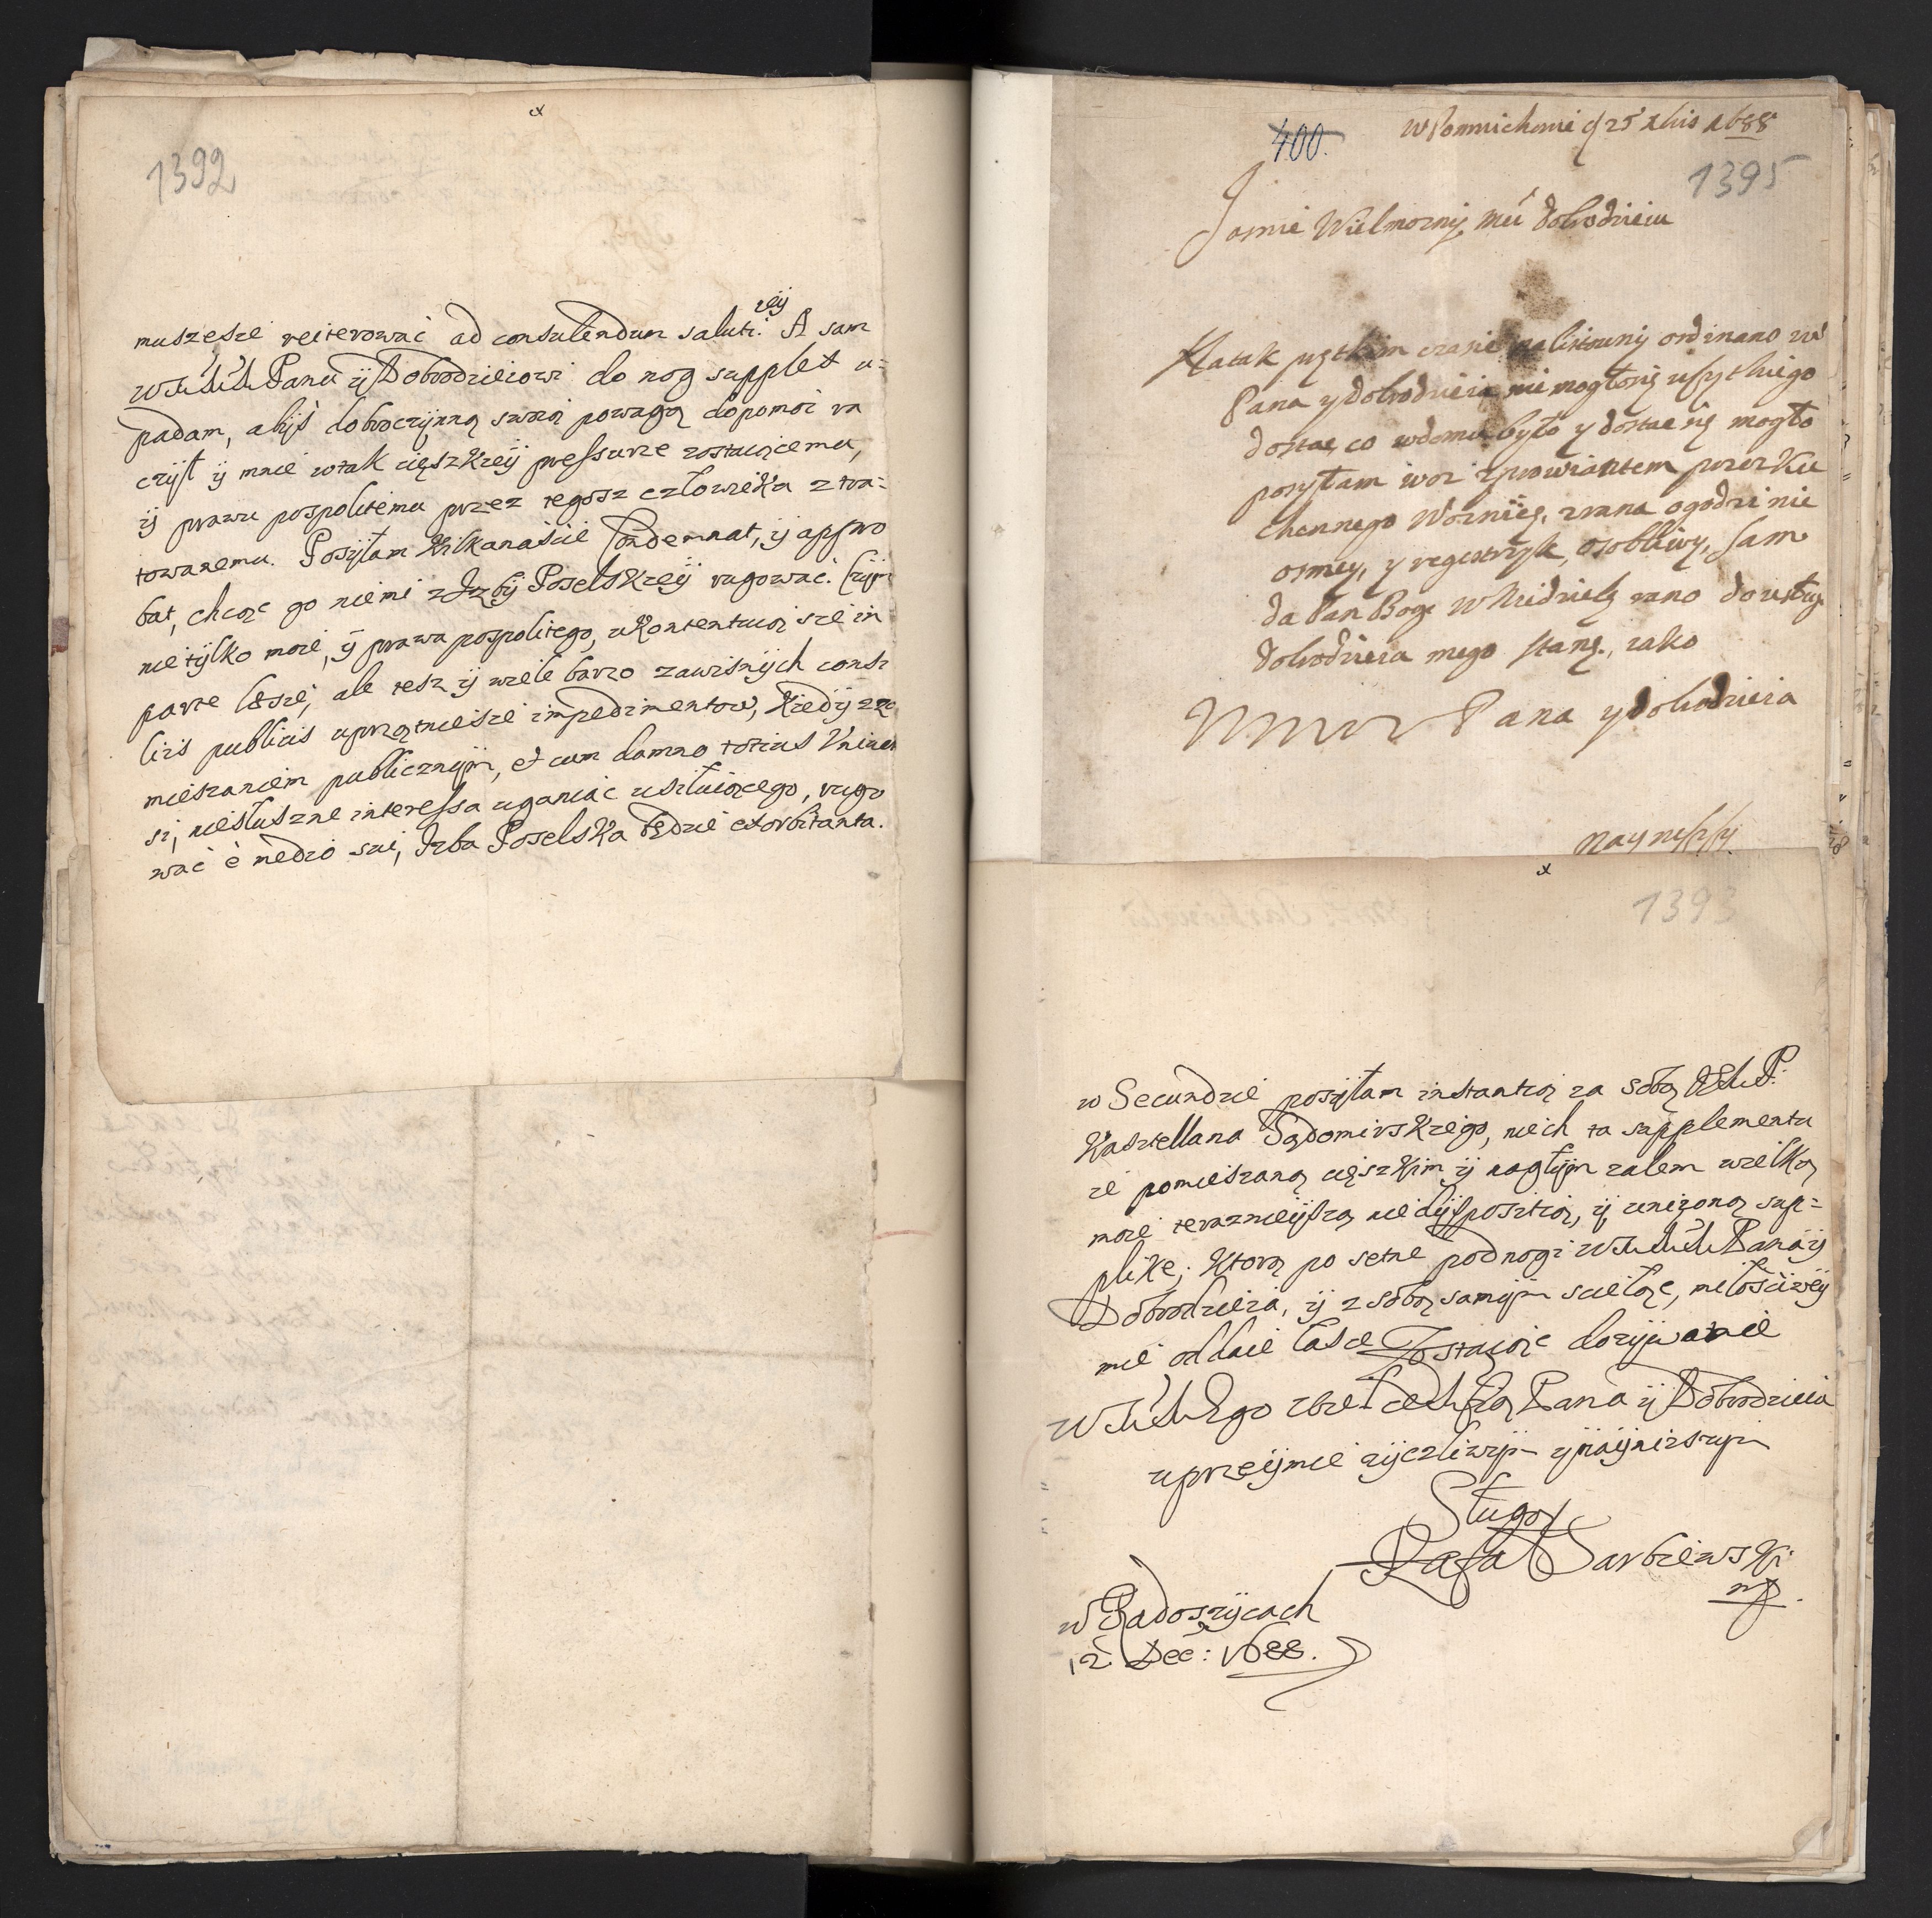 1392
muszesze reiterować ad consulendum saluti. A sam
rzeij
WMMM Panu ij Dobrodzieiowi do nog supplex u=
padam, abijś dobroczijnną swoią powagą dopomoc ra
czijł ij mnie wtak cięszkieij pressurze zostaiącemu,
ij prawu pospolitemu przez tegosz człowieka z tra=
towanemu. Posijłam kilkanaście Condemnat, ij appro
bat, chcąc go niemi z Izbij Poselskieij rugować. Czijm
nie tijlko moie, ij prawa pospolitego, ukontentuią sie in
parte lesie, ale tesz ij wiele barzo zawisnijch consi
liis publicis uprzątnie sie impedimentow, kiedij z za
mieszaniem publicznijm, et cum damno totius Univer
si, niesłuszne interessa uganiac usiłuiącego, rugo
wać è medio sui, Izba Poselska będzie exorbitanta.
400.
W Pomnichowie d 25 Xbis 1688
1395
Jasnie Wielmozny Mći Dobrodzieiu
Natak prętkim czasie nalistowny ordinans
Pana y dobrodzieia nie mogłosię wszytkiego
dostac, co wdomu było y dostac się mogło
posyłam woz zprowiantem przez Ku
chennego Wozniię, zrana ogodzinie
osmey, y regestrzyk, osobliwy, sam
da Pan Bog w Niedzielę rano do usług
dobrodzieia mego stanę, iako
Pana y dobrodzieia
naynizszy
1393
w Secundzie posijłam instantią za sobą
Kasztellana Sądomirskiego, niech ta supplementu
ie pomieszaną cięszkim ij nagłijm zalem wielką
moie terazneijszą niedijspositią, ij unizoną sup=
plikę; ktorą po setne pod nogi WMMM Pana ij
Dobrodzieia, ij z sobą samijm scieląc, miłościweij
mie oddaie łasce Zostaiąc dozijwotnie
Pana ij Dobrodzieia
uprzeijmie zijczliwijm ij naijnizszijm
Sługą
Rafał Sarbiewski
mp.
w Radoszijcach
12 Dec: 1688.